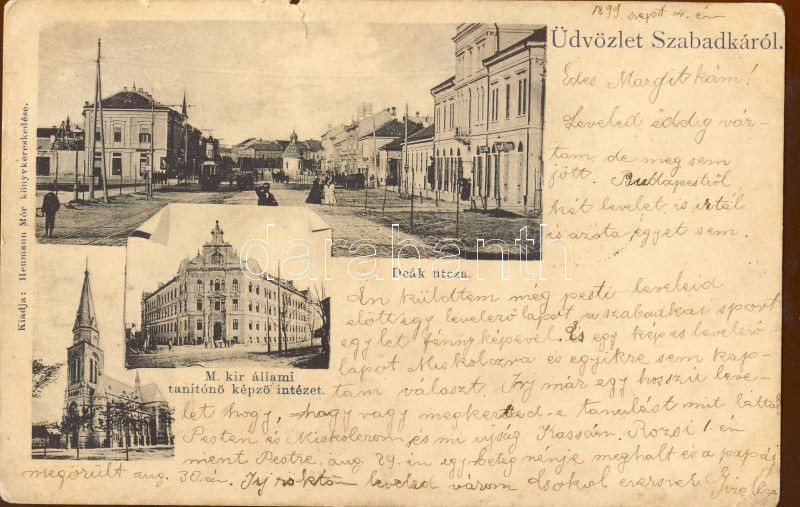 1899. szept 4. én
Üdvözlet Szabadkáról.
Édes Margitkám!
Leveled eddig vár-
tam, de meg sem
jött. Budapestről
két levelet is irtál
és azóta egyet sem.
Én küldöttem még pesti leveleid
előtt egy levelező lapot a szabadkai sport
egylet fényképével. És egy képes levelező-
lapot Miskolczra és egyikre sem kap-
tam választ. Irj már egy hosszú leve-
let hogy, hogy vagy megkezdted-e tanulást mit láttál
Pesten és Miskolczon és mi ujság Kassán. Rozsi 1. én
ment Pestre. aug. 29. én egy beteg nénje meghalt és a papája
megőrült aug. 30. án. Irj rögtön leveled várom csokol ezerszer
Deák utcza.
M. kir állami
tanitónö képzö intézet.
Kiadja: Heumann Mór könyvkereskedése.
darabanth